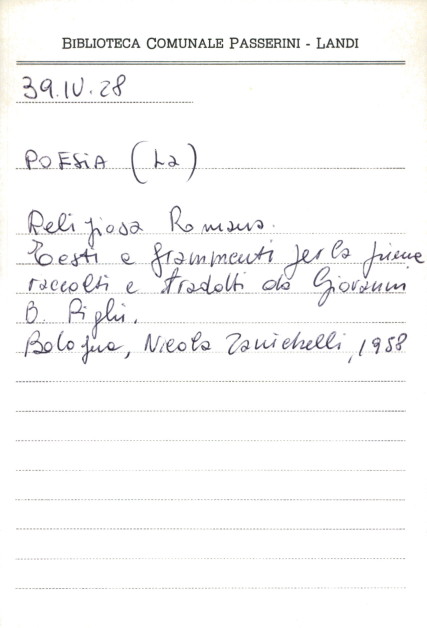 BIBLIOTECA COMUNALE PASSERINI - LANDI
39.IV.28
POESIA (La)
Religiosa Romana.
Testi e frammenti per la prima
raccolti e tradotti da Giovanni
B. Pighi.
Bologna, Nicola Zanichelli, 1958